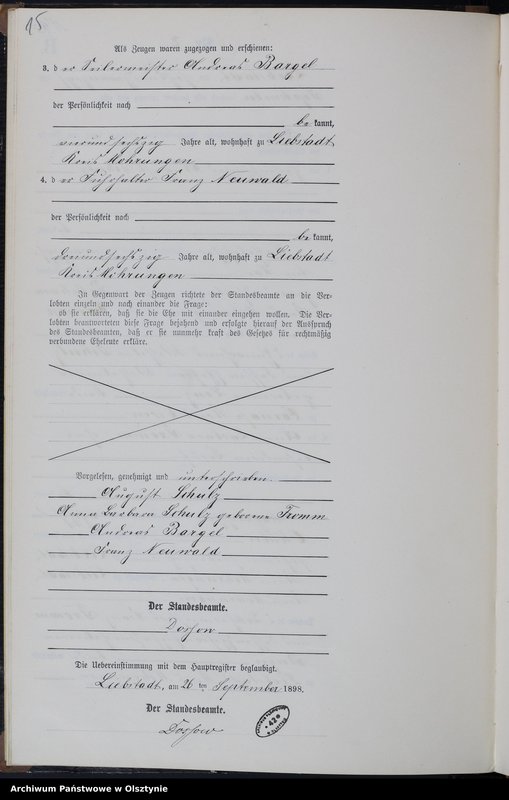 15
Als Zeugen waren zugezogen und erschienen:
3. der Andreas Bargel
der Persönlichkeit nach
be kannt,
vierundsechszig Jahre alt, wohnhaft zu Liebstadt
Kreis Mohrungen
4. der Franz Neuwald
der Persönlichkeit nach
be kannt,
dreiundsechszig Jahre alt, wohnhaft zu Liebstadt
Kreis Mohrungen
In Gegenwart der Zeugen richtete der Standesbeamte an die Ver-
lobten einzeln und nach einander die Frage:
ob sie erklären, daß sie die Ehe mit einander eingehen wollen. Die Ver-
lobten beantworteten diese Frage bejahend und erfolgte hierauf der Ausspruch
des Standesbeamten, daß er sie nunmehr kraft des Gesetzes für rechtmäßig
verbundene Eheleute erkläre.
Vorgelesen, genehmigt und unterschrieben
August Schulz
Anna Barbara Schulz geborene Fromm
Andreas Bargel
Franz Neuwald
Der Standesbeamte.
Dossow
Die Uebereinstimmung mit dem Hauptregister beglaubigt.
Liebstadt, am 26 ten September 1898.
Der Standesbeamte.
Dossow
Archiwum Państwowe w Olsztynie